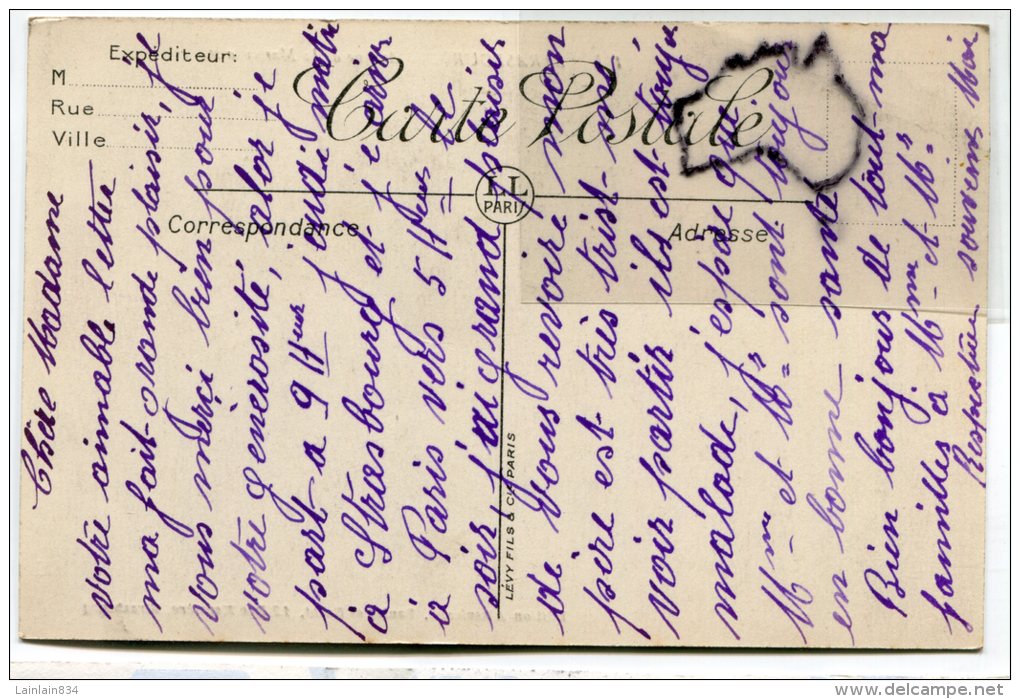 Expéditeur:
M
Rue
Ville
Carte Postale
LL
PARIS
Correspondance
Adresse
LÉVY FILS & Cie PARIS
Chère Madame
votre aimable lettre
ma fait grande plaisir, je
vous merci bien pour
votre generosité, alor je
part a 9 Heur jeudi matin
a Strasbourg et j'arive
à Paris vers 5 Heur le
soir, j'ai grand plaisir
de vous revoire mon
père est très trist me
voir partir ils est toujour
malade, j'espre que
Mme et Mr sont toujour
en bonne santé
Bien bonjour de tout ma
familles a Mme et Mr
Respectueu souvenir Moi
Lainlain834
www.delcampe.net